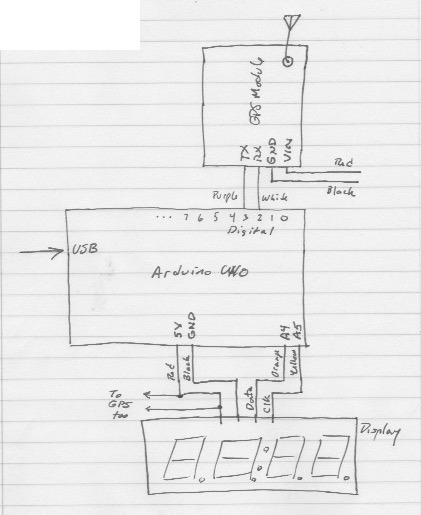 GPS Module
TX
RX
GND
VIN
Red
Black
Purple
White
... 7 6 5 4 3 2 1 0
Digital
USB
Arduino UNO
5V
GND
A4
A5
Red
Black
Orange
Yellow
To
GPS
too
Data
Clk
Display
8 8:8 8